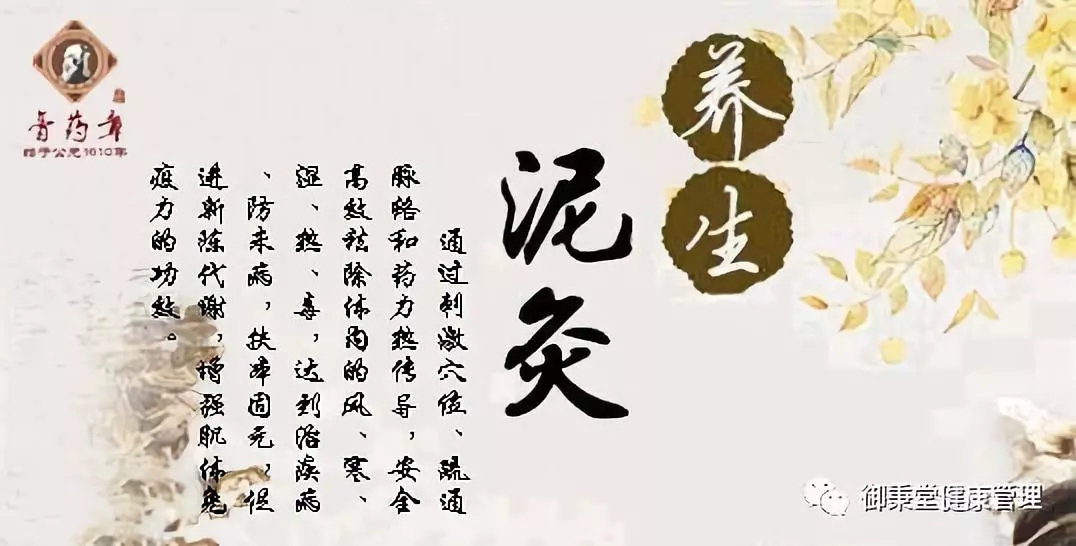 养生
泥灸
通过刺激穴位、疏通
脉络和药力热传导，安全
高效祛除体内的风、寒、
湿、热、毒，达到治疾病
、防未病，扶本固元，促
进新陈代谢，增强肌体免
疫力的功效。
始于公元1610年
御秉堂健康管理